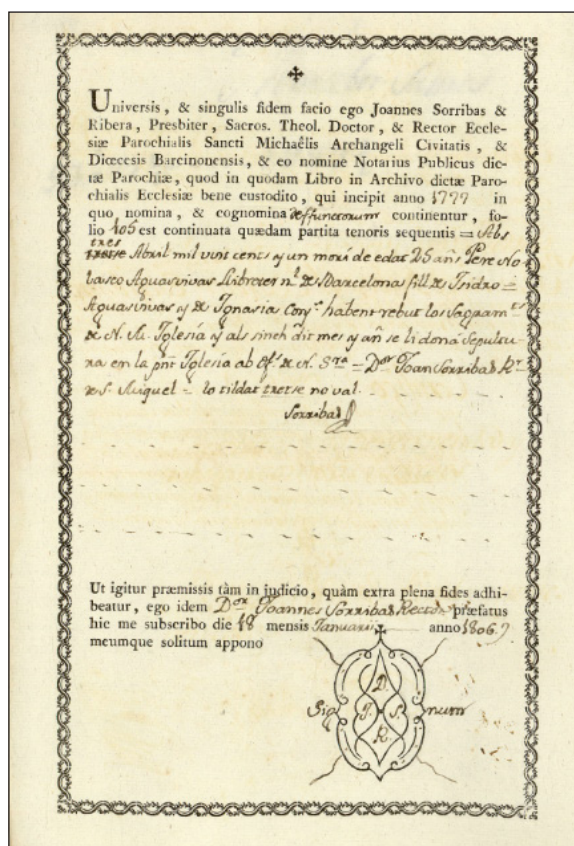 ✠
Universis, & singulis fidem facio ego Joannes Sorribas &
Ribera, Presbiter, Sacros. Theol. Doctor, & Rector Eccle-
siæ Parochialis Sancti Michaêlis Archangeli Civitatis, &
Diœcesis Barcinonensis, & eo nomine Notarius Publicus dic-
tæ Parochiæ, quod in quodam Libro in Archivo dictæ Paro-
chialis Ecclesiæ bene custodito, qui incipit anno 1777 in
quo nomina, & cognomina deffunctorum continentur, fo-
lio 105 est continuata quædam partita tenoris sequentis = Als
tres
tretse Abril mil vint cents y un morí de edat 25 añs Pere No
lasco Aguasvivas Llibreter nl. de Barcelona fill de Isidro =
Aguasvivas y de Ignasia Cony.s habent rebut los Sagram.ts
de N. M. Iglesía y als sinch dit mes y añ se li dona Sepultu-
ra en la pnt Iglesia ab Of.i de N. Sra = Dor Joan Sorribas Rr
de S. Miquel = lo tildat tretse no val.
Sorribas
Ut igitur præmissis tàm in judicio, quàm extra plena fides adhi-
beatur, ego idem Dor Joannes Sorribas Rector præfatus
hic me subscribo die 18 mensis Januarii anno 1806
meumque solitum appono
D.
Sig J. S. num
R.